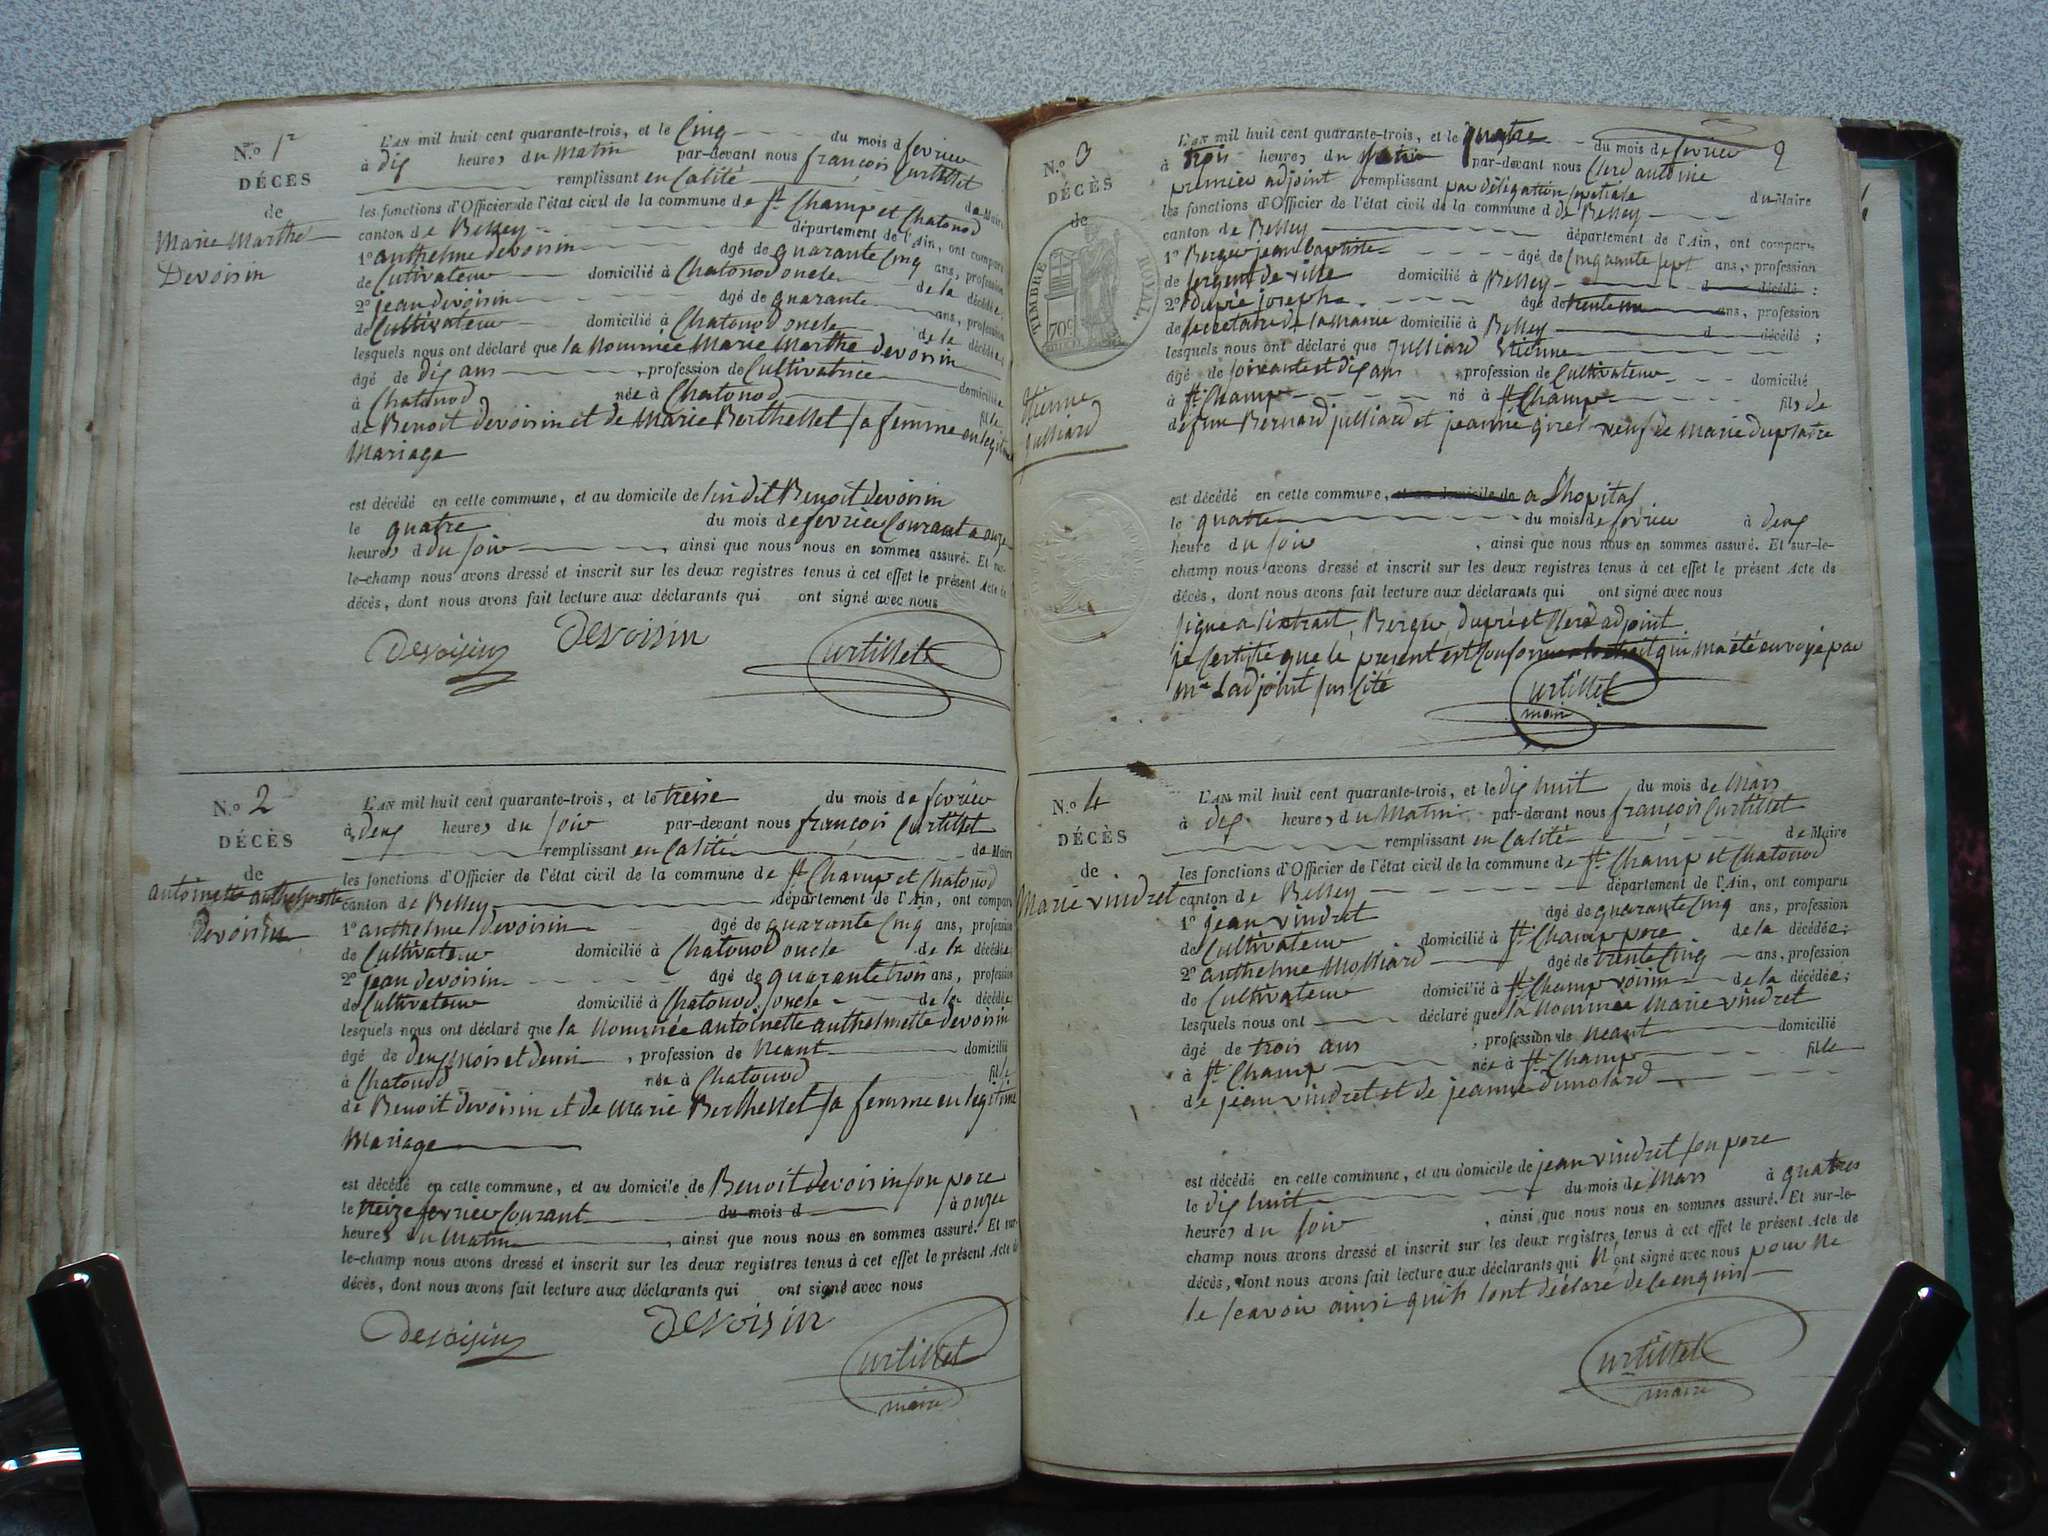 N.º 1er
DÉCÈS
de
Marie Marthe
Devoisin
L'AN mil huit cent quarante-trois, et le Cinq du mois d fevrier
à dix heures du Matin par-devant nous françois Curtillet
remplissant en Calité de Maire
les fonctions d'Officier de l'état civil de la commune de St Champ et Chatonod
canton de Belley département de l'Ain, ont comparu
1º anthelme devoisin âgé de quarante Cinq ans, profession
de Cultivateur domicilié à Chatonod oncle de la décédée
2º jean devoisin âgé de quarante ans, profession
de Cultivateur domicilié à Chatonod oncle de la décédée
lesquels nous ont déclaré que la Nommée Marie Marthe devoisin
âgé de dix ans , profession de Cultivatrice domiciliée
à Chatonod née à Chatonod fille
de Benoit devoisin et de Marie Berthellet sa femme en legitime
Mariage
est décédé en cette commune, et au domicile de sudit Benoit devoisin
le quatre du mois de fevrier Courant à onze
heures d du soir , ainsi que nous nous en sommes assuré. Et sur-
le-champ nous avons dressé et inscrit sur les deux registres tenus à cet effet le présent Acte de
décès, dont nous avons fait lecture aux déclarants qui ont signé avec nous
Devoisin Devoisin Curtillet
N.º 2
DÉCÈS
de
antoinette anthelmette
devoisin
L'AN mil huit cent quarante-trois, et le treise du mois de fevrier
à deux heures du soir par-devant nous françois Curtillet
remplissant en Calité de Maire
les fonctions d'Officier de l'état civil de la commune de St Champ et Chatonod
canton de Belley département de l'Ain, ont comparu
1º anthelme devoisin âgé de quarante Cinq ans, profession
de Cultivateur domicilié à Chatonod oncle de la décédée
2º jean devoisin âgé de quarante trois ans, profession
de Cultivateur domicilié à Chatonod oncle de la décédée
lesquels nous ont déclaré que la Nommée antoinette anthelmette devoisin
âgé de deux mois et demi , profession de Neant domicilié
à Chatonod née à Chatonod fille
de Benoit devoisin et de Marie Berthellet sa femme en legitime
Mariage
est décédé en cette commune, et au domicile de Benoit devoisin son pere
le treize fevrier Courant du mois d à onze
heures du Matin , ainsi que nous nous en sommes assuré. Et sur-
le-champ nous avons dressé et inscrit sur les deux registres tenus à cet effet le présent Acte de
décès, dont nous avons fait lecture aux déclarants qui ont signé avec nous
Devoisin Devoisin Curtillet
maire
N.º 3
DÉCÈS
de
TIMBRE ROYAL
70c
Etienne
julliard
2
L'AN mil huit cent quarante-trois, et le quatre du mois de fevrier
à trois heures du par-devant nous Clerc antoine
premier adjoint remplissant par déligation spétiale du Maire
les fonctions d'Officier de l'état civil de la commune d de Belley
canton de Belley département de l'Ain, ont comparu
1º Berger jean baptiste âgé de Cinquante sept ans, profession
de sergent de ville domicilié à Belley d décédé ;
2º dupré josephe âgé de trente un ans, profession
de secretaire de la mairie domicilié à Belley d décédé ;
lesquels nous ont déclaré que julliard Etienne
âgé de soixante et dix ans , profession de Cultivateur domicilié
à St Champ né à St Champ fils de
de feu Bernard julliard et jeanne veuf de Marie
est décédé en cette commune, et au domicile de a Lhopital
le quatre du mois de fevrier à deux
heure du soir , ainsi que nous nous en sommes assuré. Et sur-le-
champ nous avons dressé et inscrit sur les deux registres tenus à cet effet le présent Acte de
décès, dont nous avons fait lecture aux déclarants qui ont signé avec nous
signé a lextrait, Berger dupré et Clerc adjoint
je Certifie que le present est Conforme a lextrait qui ma été envoyé par
mr Ladjoint sus Cité Curtillet
maire
N.º 4
DÉCÈS
de
Marie vindret
L'AN mil huit cent quarante-trois, et le dix huit du mois de Mars
à dix heures du Matin par-devant nous françois Curtillet
remplissant en Calité de Maire
les fonctions d'Officier de l'état civil de la commune de St Champ et Chatonod
canton de Belley département de l'Ain, ont comparu
1º jean vindret âgé de quarante Cinq ans, profession
de Cultivateur domicilié à St Champ pere de la décédée ;
2º anthelme Molliard âgé de trente Cinq ans, profession
de Cultivateur domicilié à St Champ voisin de la décédée ;
lesquels nous ont déclaré que la Nommée Marie vindret
âgé de trois ans , profession de neant domicilié
à St Champ née à St Champ fille
de jean vindret et de jeanne dumolard
est décédé en cette commune, et au domicile de jean vindret son pere
le dix huit du mois de Mars à quatres
heures du soir , ainsi que nous nous en sommes assuré. Et sur-le-
champ nous avons dressé et inscrit sur les deux registres tenus à cet effet le présent Acte de
décès, dont nous avons fait lecture aux déclarants qui N'ont signé avec nous pour Ne
le scavoir ainsi quils lont déclaré de ce enquis
Curtillet
maire